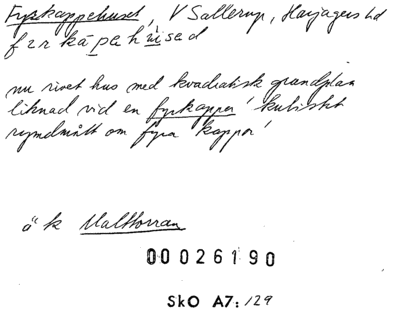 Fyrkappehuset, V Sallerup, Harjagers hd
fyrkapehused
nu rivet hus med kvadratisk grundplan
liknad vid en fyrkappa 'kubiskt
rymdmått om fyra kappor'
ä k Malttorran
00026190
SkO A7: 129